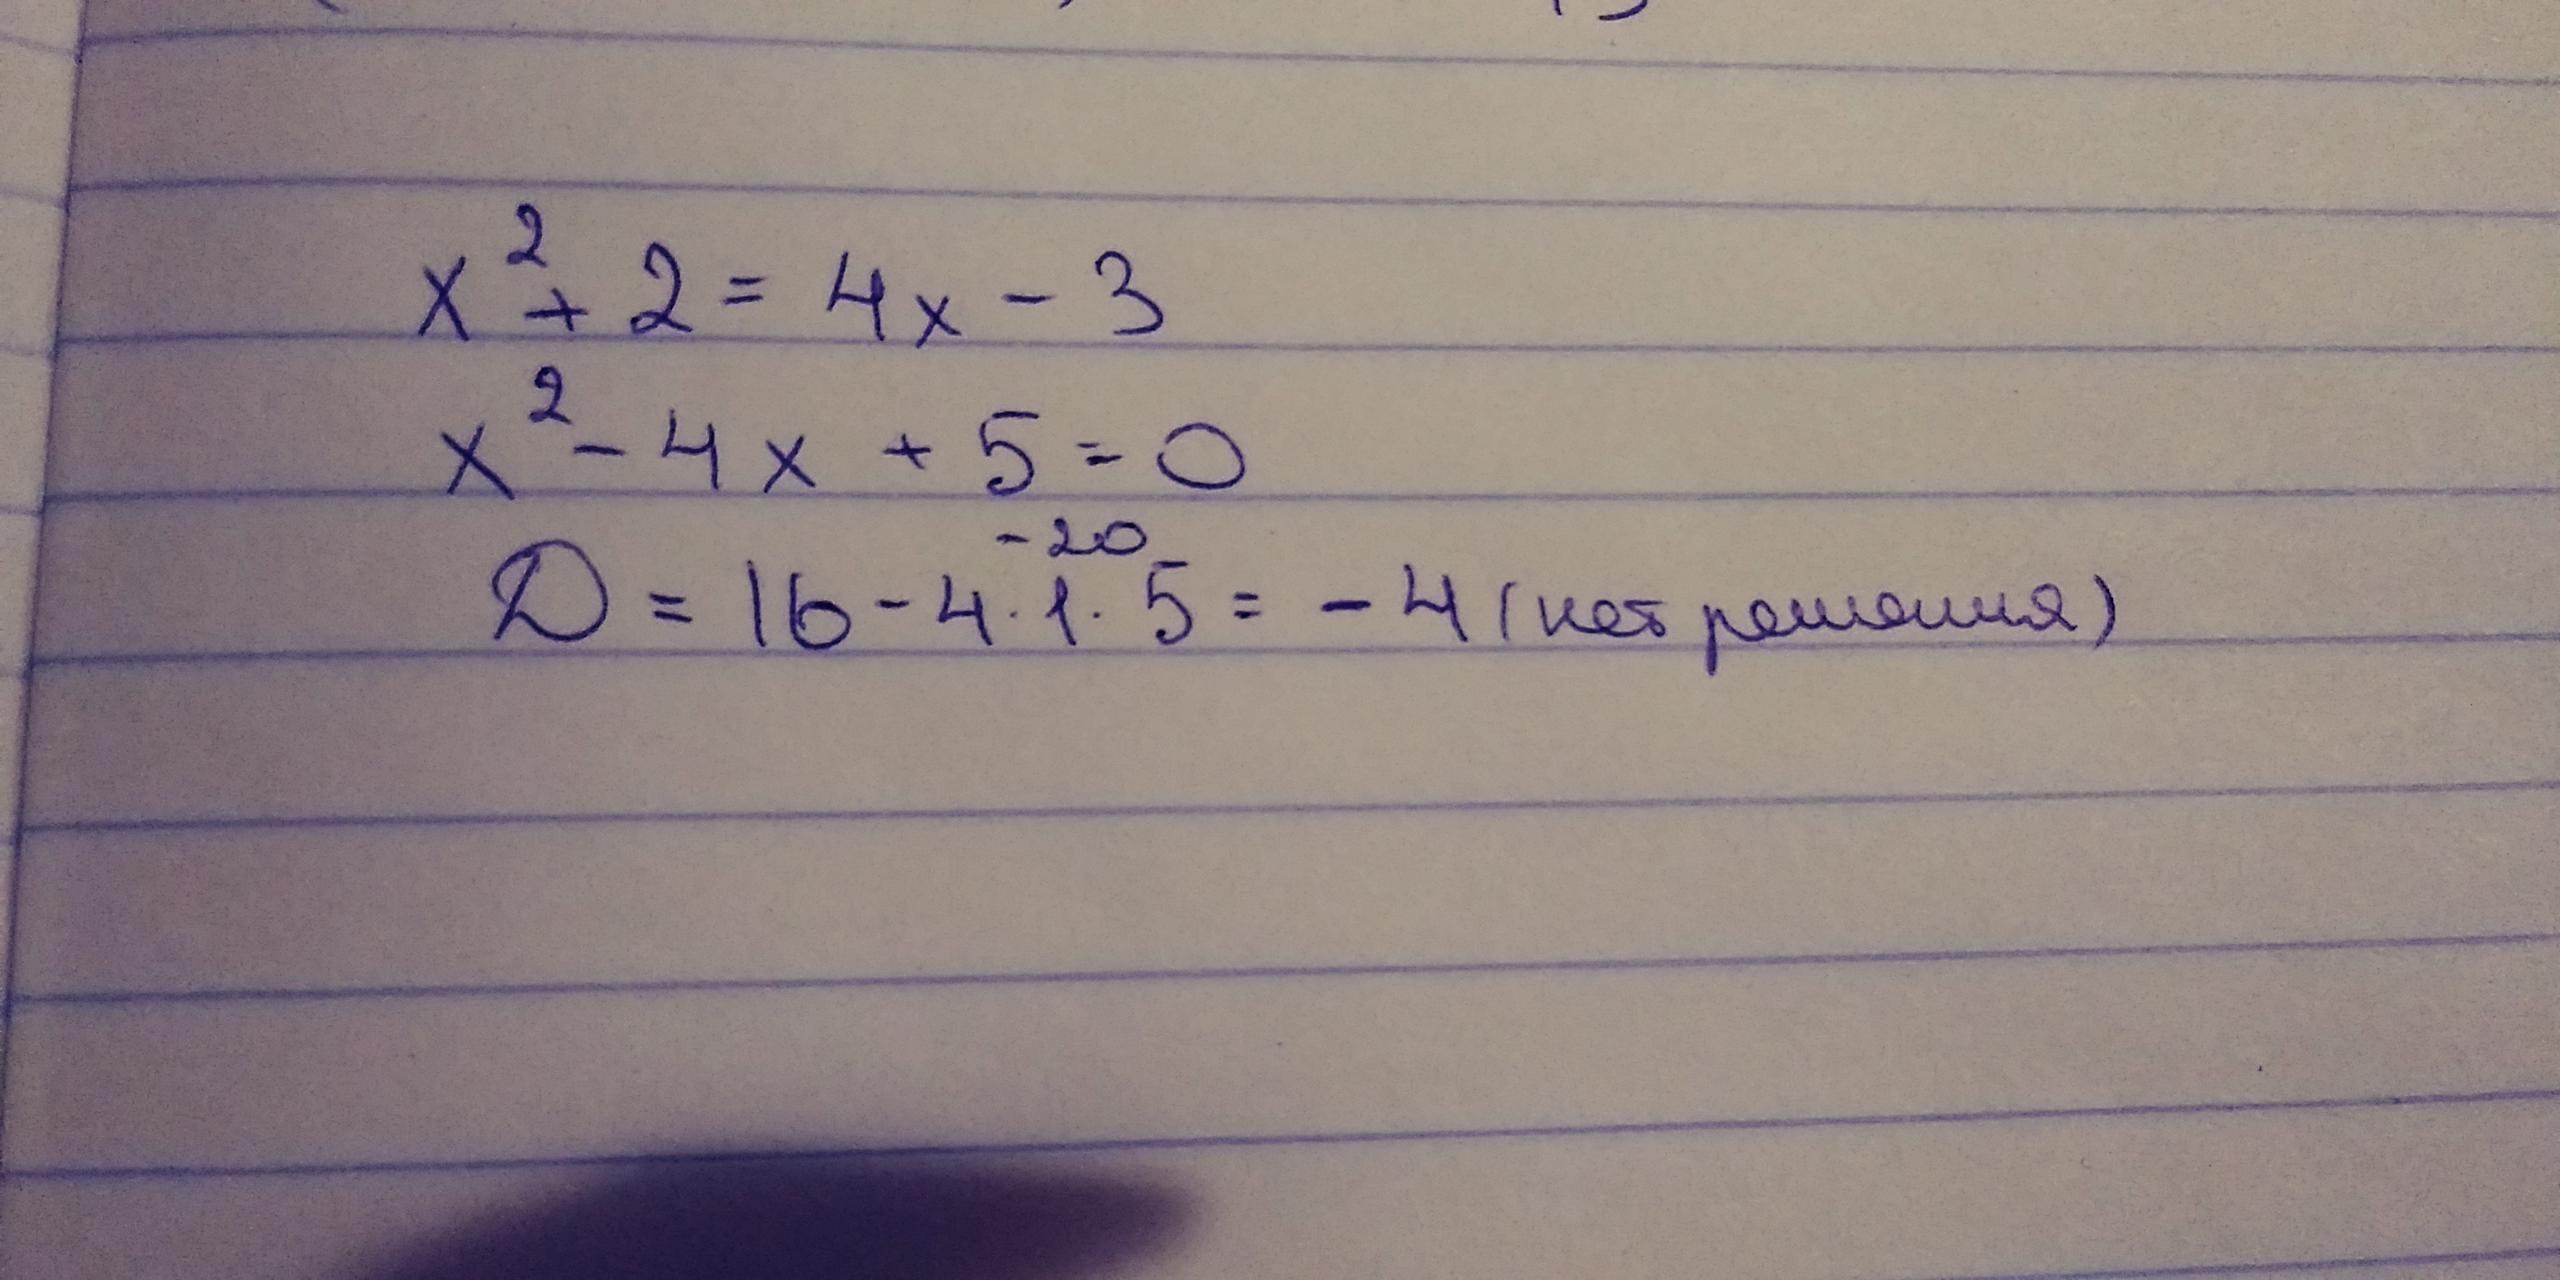 x² + 2 = 4x - 3
x² - 4x + 5 = 0
-20
D = 16 - 4 · 1 · 5 = -4 (нет решения)